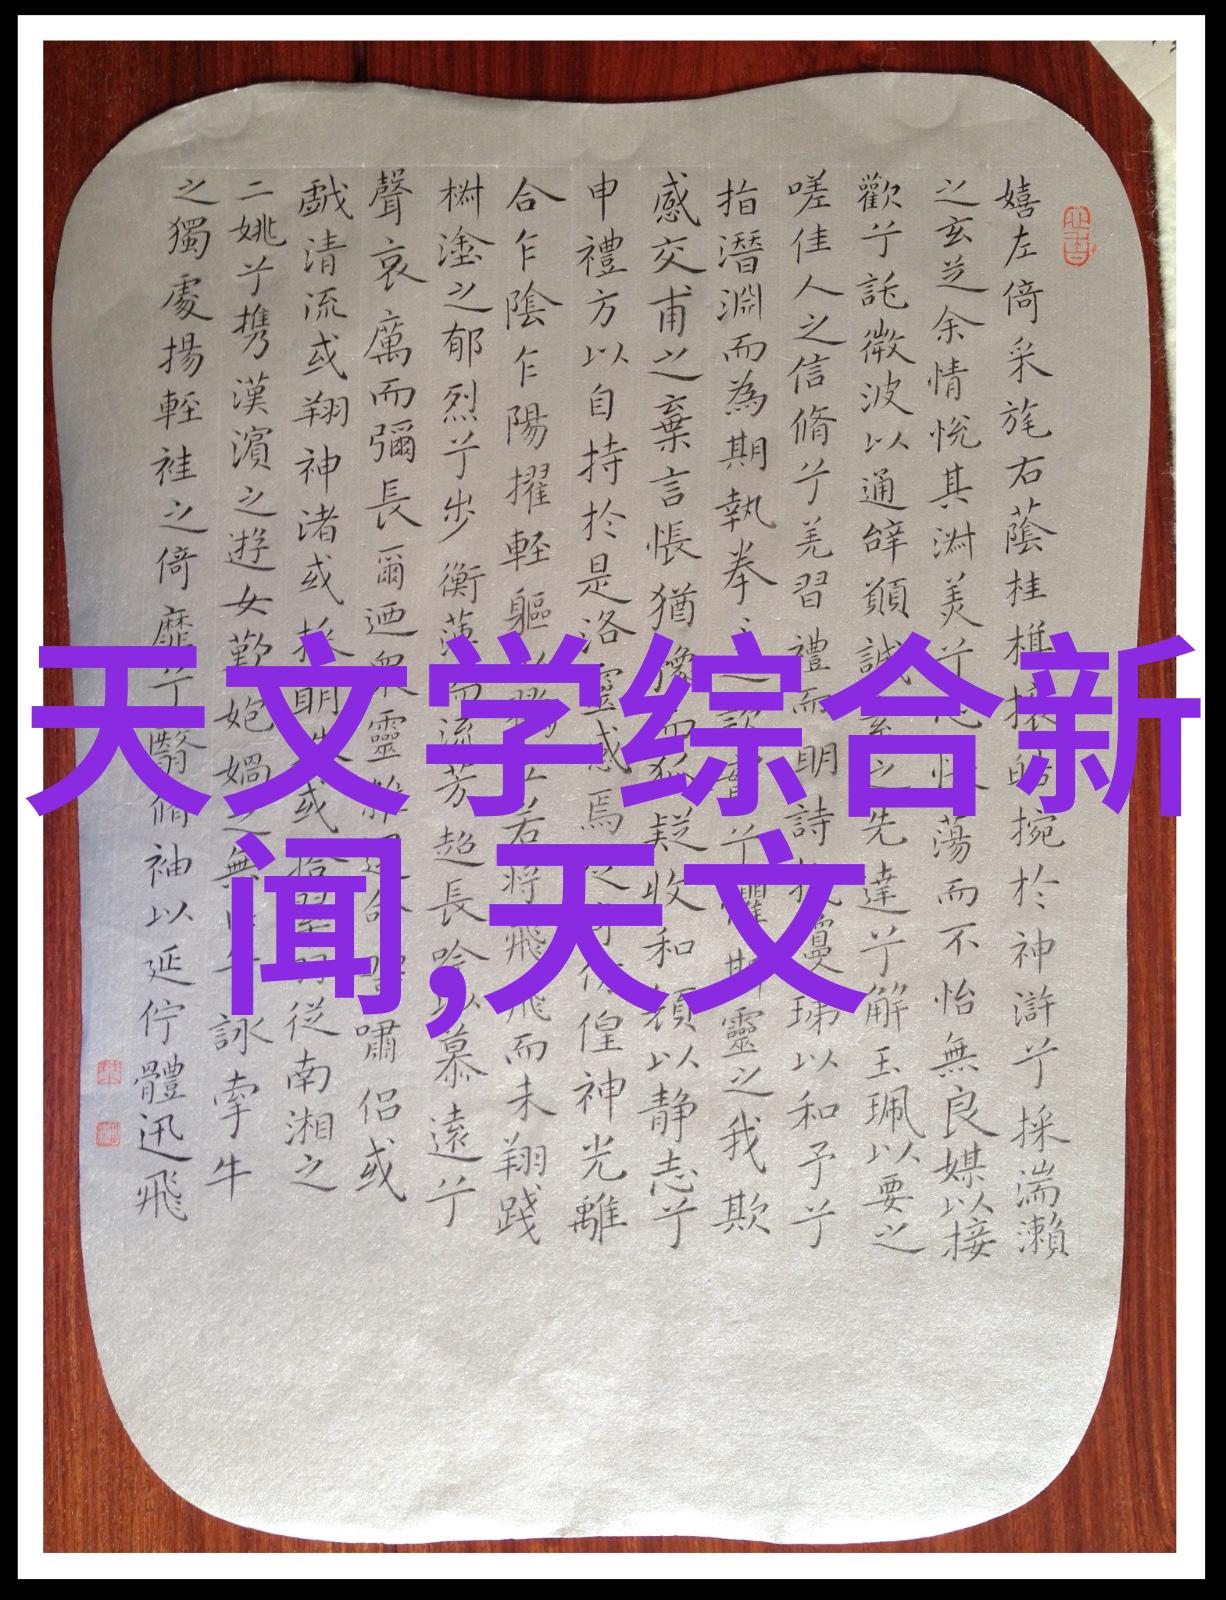 嬉左倚采旄右蔭桂攘皓捥於神滸兮採湍瀨
之玄芝余情悅其淑美兮蕩而不怡無良媒以接
歡兮託微波以通辭願誠素之先達兮解玉珮以要之
嗟佳人之信脩兮羌習禮而明詩瓊珶以和予兮
指潛淵而為期執拳之款實兮懼斯靈之我欺
感交甫之棄言悵猶豫而狐疑收和顏以静志兮
申禮方以自持於是洛靈感焉徨神光離
合乍陰乍陽擢輕軀以若將飛而未翔踐
椒塗之郁烈兮步衡薄而流芳超長吟以慕遠兮
聲哀厲而彌長爾迺衆靈雜命嘯侶或
戲清流或翔神渚或採明或拾羽從南湘之
二姚兮携漢濱之遊女歎媧之無兮詠牽牛
之獨處揚輕袿之倚靡兮翳脩袖以延佇體迅飛
天文学综合新
闻,天文